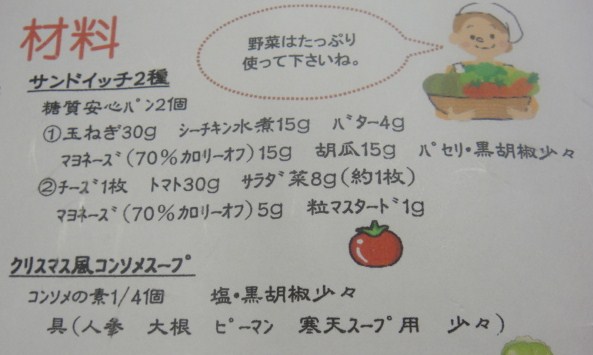 材料
野菜はたっぷり
使って下さいね。
サンドイッチ2種
糖質安心ﾊﾟﾝ21個
①玉ねぎ30g シーチキン水煮15g ﾊﾞﾀｰ4g
ﾏﾖﾈｰｽﾞ(70%カロリーオフ)15g 胡瓜15g ﾊﾟｾﾘ・黒胡椒少々
②ﾁｰｽﾞ1枚 トマト30g サラダ菜8g(約1枚)
ﾏﾖﾈｰｽﾞ(70%カロリーオフ)5g 粒マスタード1g
クリスマス風コンソメスープ
コンソメの素1/41個 塩・黒胡椒少々
具(人参 大根 ﾋﾟｰﾏﾝ 寒天スープ用 少々)